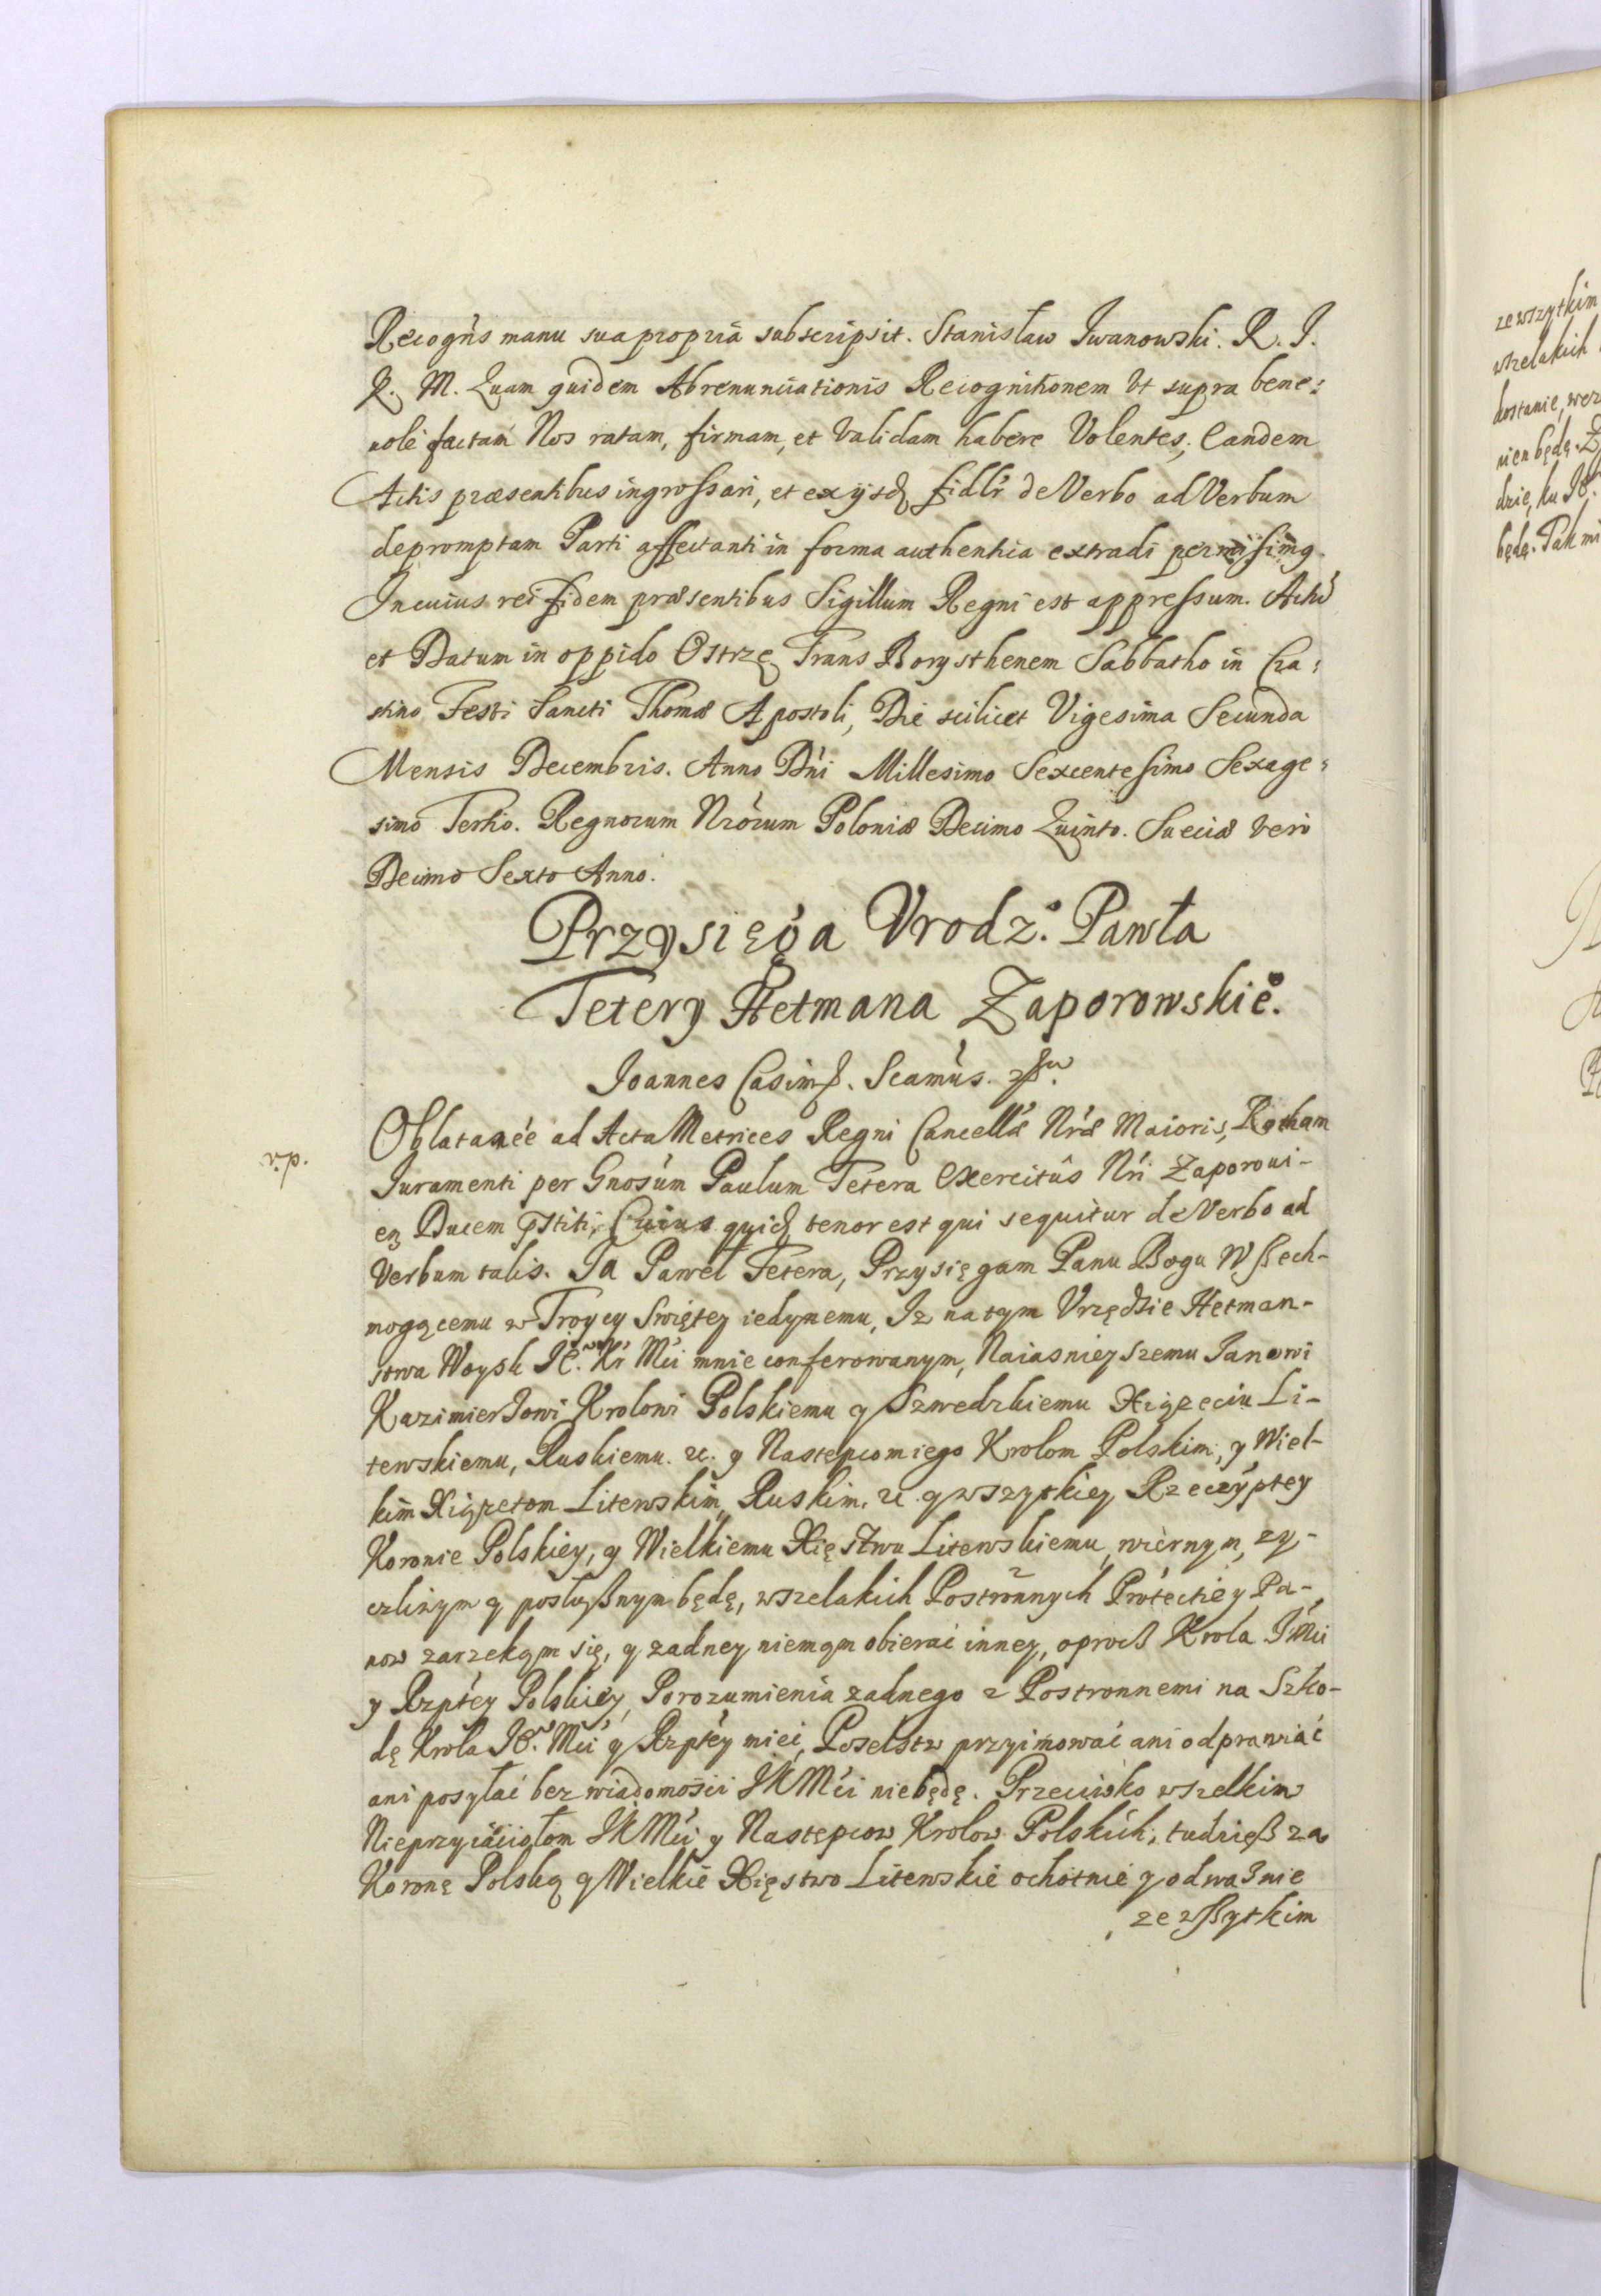 Recogńs manu sua propria subscripsit. Stanisław Iwanowski. R. J.
K. M. Quam quidem Abrenunciationis Recognitionem Vt supra bene:
uole factam Nos ratam, firmam, et Validam habere Volentes, Eandem
Actis præsentibus ingrossari, et ex ijsd fidlr de Verbo ad Verbum
depromptam Parti affectanti in forma authentica extradi permisimg.
In cuius rei fidem præsentibus Sigillum Regni est appressum. Actu
et Datum in oppido Ostrze Trans Borysthenem Sabbatho in Cra:
stino Festi Sancti Thomæ Apostoli, Die scilicet Vigesima Secunda
Mensis Decembris. Anno Dńi Millesimo Sexcentesimo Sexage:
simo Tertio. Regnorum Nrórum Poloniæ Decimo Quinto. Sueciæ Vero
Decimo Sexto Anno.
Przysięga Vrodz.o Pawła
Tetery Hetmana Zaporowskieo.
Joannes Casim. Scamus.
Oblatam ée ad Acta Metrices Regni Cancellæ Nræ Maioris, Rotham
Juramenti per Gnosúm Paulum Tetera Exercitûs Nri Zaporoui-
en Ducem pstiti, Cuius quid tenor est qui sequitur de Verbo ad
Verbum talis. Ja Paweł Tetera, Przysięgam Panu Bogu Wßech-
mogącemu w Troycy Swiętey iedynemu, Iz na tym Vrzędzie Hetman-
stwa Woysk Je. Kr Mci mnie conferowanym, Naiasnieyszemu Janowi
Kazimierzowi Krolowi Polskiemu y Szwedzkiemu Xiązeciu Li-
tewskiemu, Ruskiemu. &c. y Nastepcom iego Krolom Polskim, y Wiel-
kim Xiązetom Litewskim, Ruskim, &c. y wszytkiey Rzeczyptey
Koronie Polskiey, y Wielkiemu Xięstwu Litewskiemu, wiernym, zy-
czliwym y posłußnym będę, wszelakich Postronnych Protectiey Pa-
now zarzekąm się, y zadney niemąm obierać inney, oprocz Krola JMci
y Rzptey Polskiey, Porozumienia zadnego z Postronnemi na Szko-
dę Krola Je. Mci y Rzptey mieć, Poselstw przyimować ani odprawiać
ani posyłać bez wiadomości JKMci niebędę. Przeciwko wszelkim
Nieprzyiaciołom JKMci y Nastepcow Krolow Polskich, tudzieß za
Koronę Polską y Wielkie Xięstwo Litewskie ochotnie y odwaznie
ze wßytkim
zewszytkim
wszelakich
dostanie, wez
nien będę.
dzie, ku
będę. Tak mi